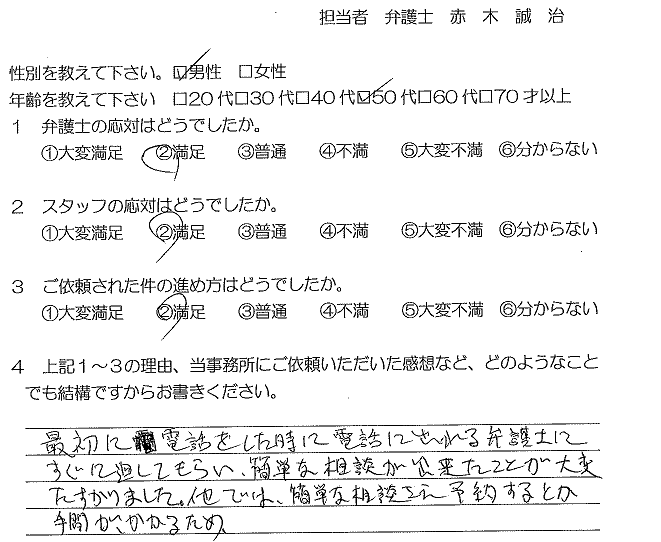 担当者 弁護士 赤木誠治
性別を教えて下さい。☑男性 □女性
年齢を教えて下さい □20代□30代□40代☑50代□60代□70才以上
1 弁護士の応対はどうでしたか。
①大変満足 ②満足 ③普通 ④不満 ⑤大変不満 ⑥分からない
2 スタッフの応対はどうでしたか。
①大変満足 ②満足 ③普通 ④不満 ⑤大変不満 ⑥分からない
3 ご依頼された件の進め方はどうでしたか。
①大変満足 ②満足 ③普通 ④不満 ⑤大変不満 ⑥分からない
4 上記1～3の理由、当事務所にご依頼いただいた感想など、どのようなこと
でも結構ですからお書きください。
最初に電話をした時に電話に出れる弁護士に
すぐに通してもらい、簡単な相談が出来たことが大変
たすかりました。他では、簡単な相談さえ予約するとか
手間がかかるため、